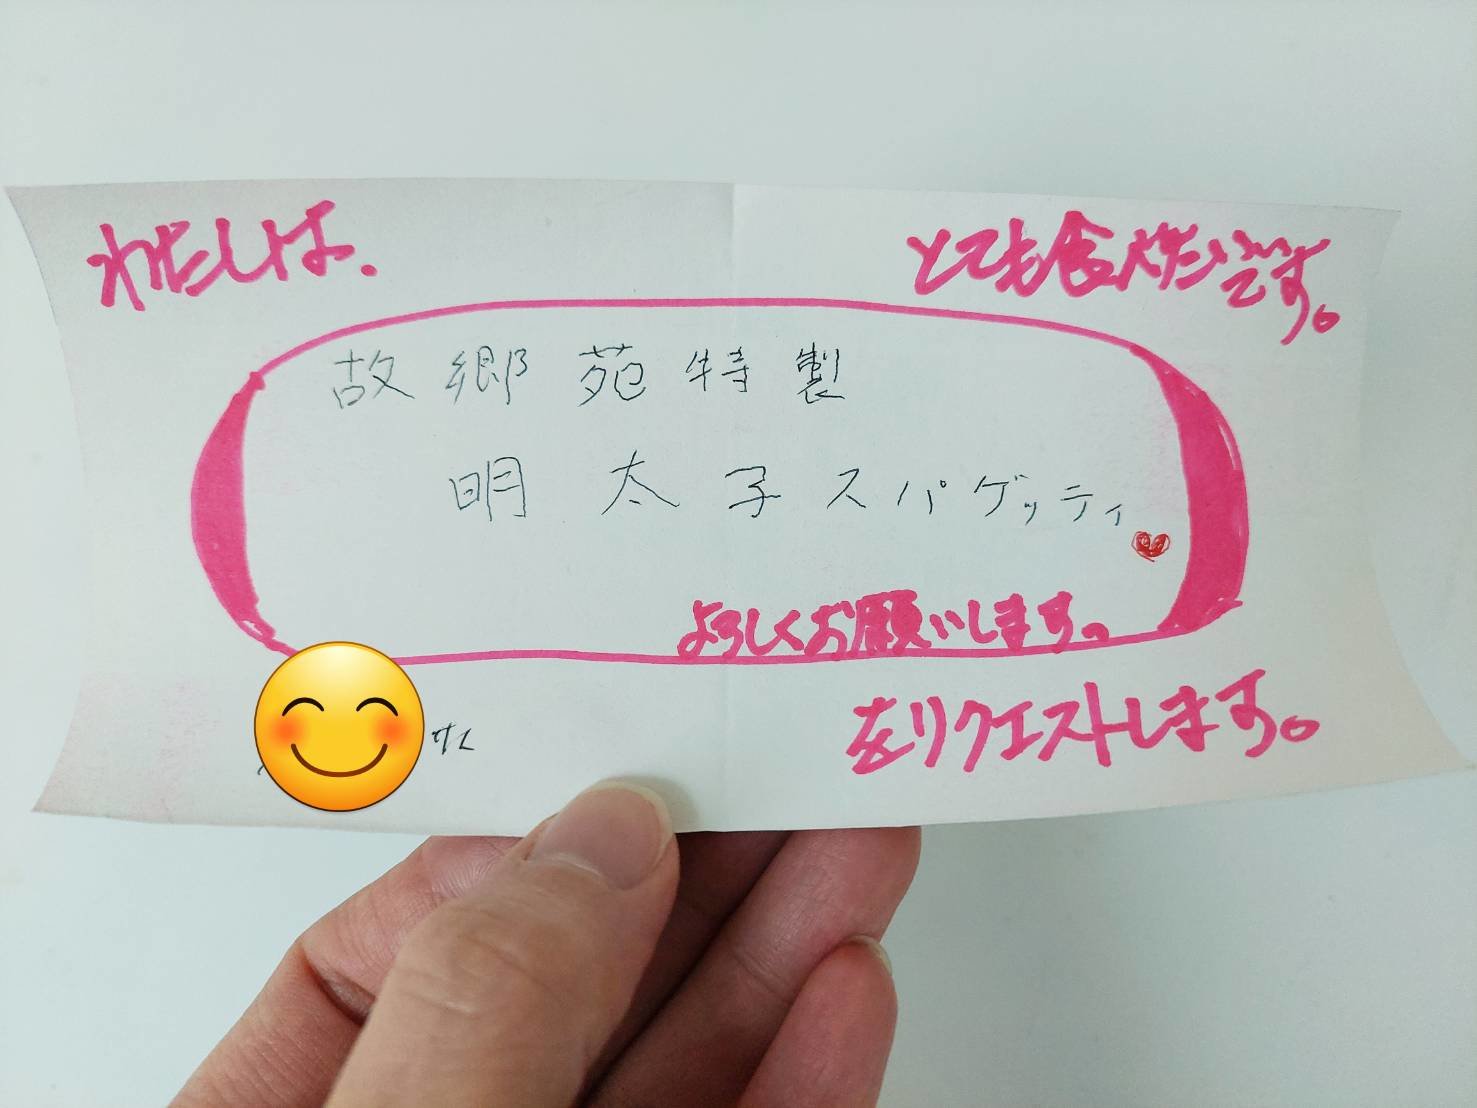 わたしは、
とても食べたいです。
故郷苑特製
明太子スパゲッティ
よろしくお願いします。
をリクエストします。